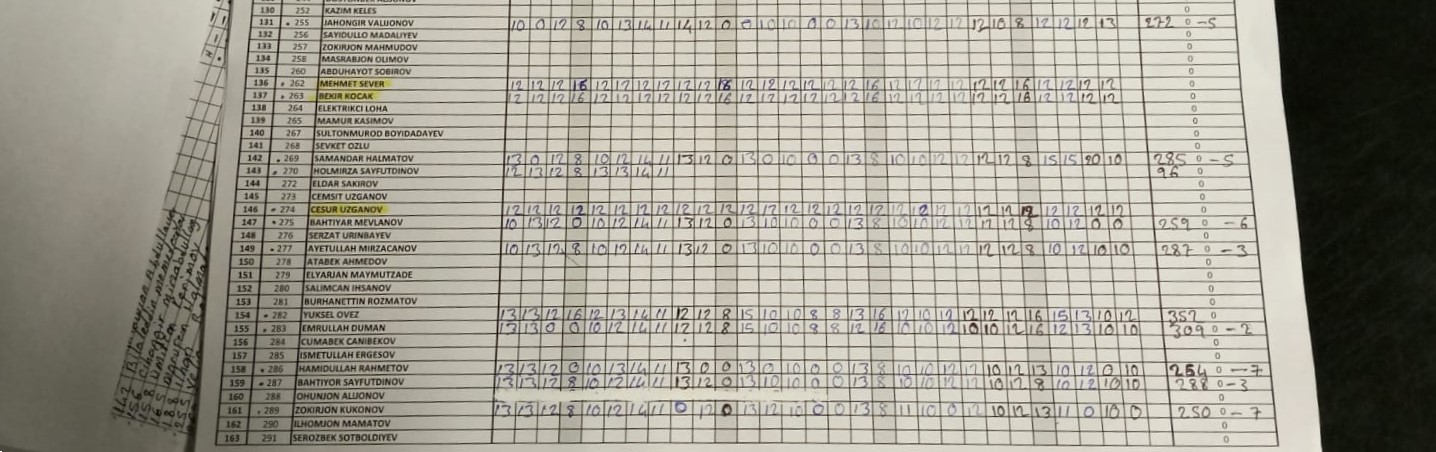 130 252 KAZIM KELES 0
131 255 JAHONGIR VALIJONOV 10 0 12 8 10 13 14 11 14 12 0 0 10 10 0 0 13 10 12 10 12 12 12 10 8 12 12 12 13 272 0 -5
132 256 SAYIDULLO MADALIYEV 0
133 257 ZOKIRJON MAHMUDOV 0
134 258 MASRABJON OLIMOV 0
135 260 ABDUHAYOT SOBIROV 0
136 262 MEHMET SEVER 12 12 12 16 12 12 12 12 12 12 18 12 12 12 12 12 12 16 12 12 12 12 12 12 16 12 12 12 12 0
137 263 BEKIR KOCAK 12 12 12 16 12 12 12 12 12 12 16 12 12 12 12 12 12 16 12 12 12 12 12 12 16 12 12 12 12 0
138 264 ELEKTRIKCI LOHA 0
139 265 MAMUR KASIMOV 0
140 267 SULTONMUROD BOYIDADAYEV 0
141 268 SEVKET OZLU 0
142 269 SAMANDAR HALMATOV 13 0 12 8 10 12 14 11 13 12 0 13 0 10 0 0 13 8 10 10 12 12 12 12 8 15 15 20 10 285 0 -5
143 270 HOLMIRZA SAYFUTDINOV 12 13 12 8 13 13 14 11 96 0
144 272 ELDAR SAKIROV 0
145 273 CEMSIT UZGANOV 0
146 274 CESUR UZGANOV 12 12 12 12 12 12 12 12 12 12 12 12 12 12 12 12 12 12 12 12 12 12 12 12 12 12 12 12 12 0
147 275 BAHTIYAR MEVLANOV 10 13 12 0 10 12 14 11 13 12 0 13 10 10 0 0 13 8 10 10 12 12 12 12 8 10 12 0 0 259 0 -6
148 276 SERZAT URINBAYEV 0
149 277 AYETULLAH MIRZACANOV 10 13 12 8 10 12 14 11 13 12 0 13 10 10 0 0 13 8 10 10 12 12 12 12 8 10 12 10 10 287 0 -3
150 278 ATABEK AHMEDOV 0
151 279 ELYARJAN MAYMUTZADE 0
152 280 SALIMCAN IHSANOV 0
153 281 BURHANETTIN ROZMATOV 0
154 282 YUKSEL OVEZ 13 13 12 16 12 13 14 11 12 12 8 15 10 10 8 8 13 16 12 10 12 12 12 12 16 15 13 10 12 352 0
155 283 EMRULLAH DUMAN 13 13 0 0 10 12 14 11 12 12 8 15 10 10 8 8 12 16 10 10 12 10 10 12 16 12 13 10 10 309 0 -2
156 284 CUMABEK CANIBEKOV 0
157 285 ISMETULLAH ERGESOV 0
158 286 HAMIDULLAH RAHMETOV 13 13 12 0 10 13 14 11 13 0 0 13 0 10 0 0 13 8 10 10 12 12 10 12 13 10 12 0 10 254 0 -7
159 287 BAHTIYOR SAYFUTDINOV 13 13 12 8 10 12 14 11 13 12 0 13 10 10 0 0 13 8 10 10 12 12 10 12 8 10 12 10 10 288 0 -3
160 288 OHUNJON ALIJONOV 0
161 289 ZOKIRJON KUKONOV 13 13 12 8 10 12 14 11 0 12 0 13 12 10 0 0 13 8 11 10 0 12 10 12 13 11 0 10 0 250 0 -7
162 290 ILHOMJON MAMATOV 0
163 291 SEROZBEK SOTBOLDIYEV 0